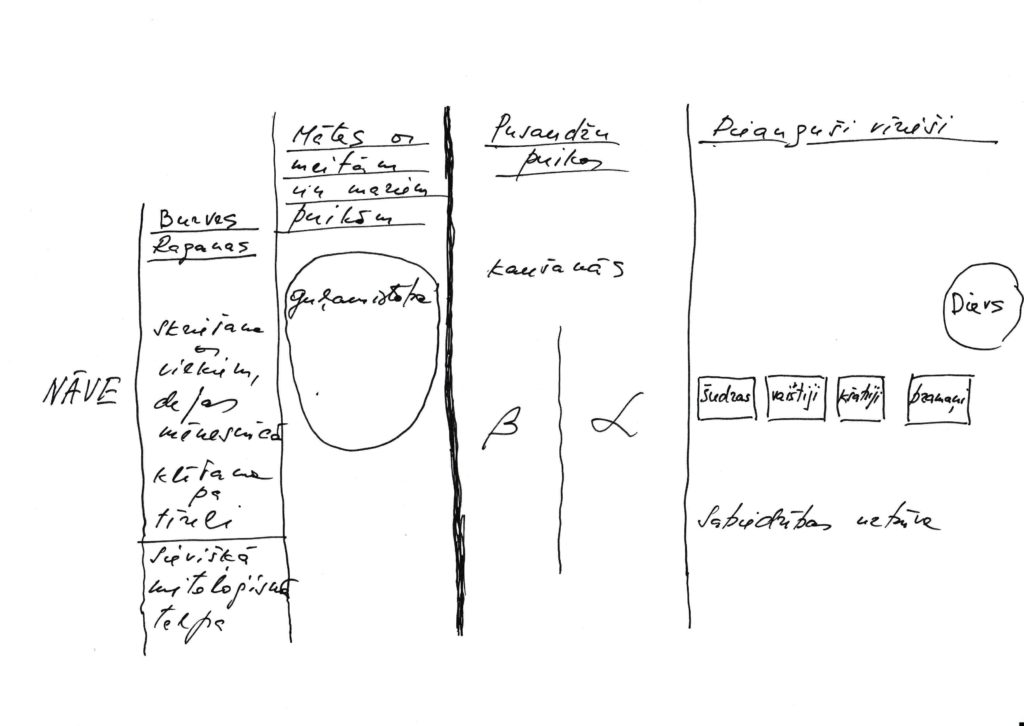 NĀVE
Burves
Raganas
skriešana
ar
vilkiem,
dejas
mēnesnīcā
klīšana
pa
tīreli
sievišķā
mitoloģiskā
telpa
Mātes ar
meitām
un maziem
puikām
guļamistaba
Pusaudžu
puikas
kaušanās
β
α
Pieauguši vīrieši
Dievs
šudras
vaišiji
kšatriji
bramaņi
sabiedrības uzbūve